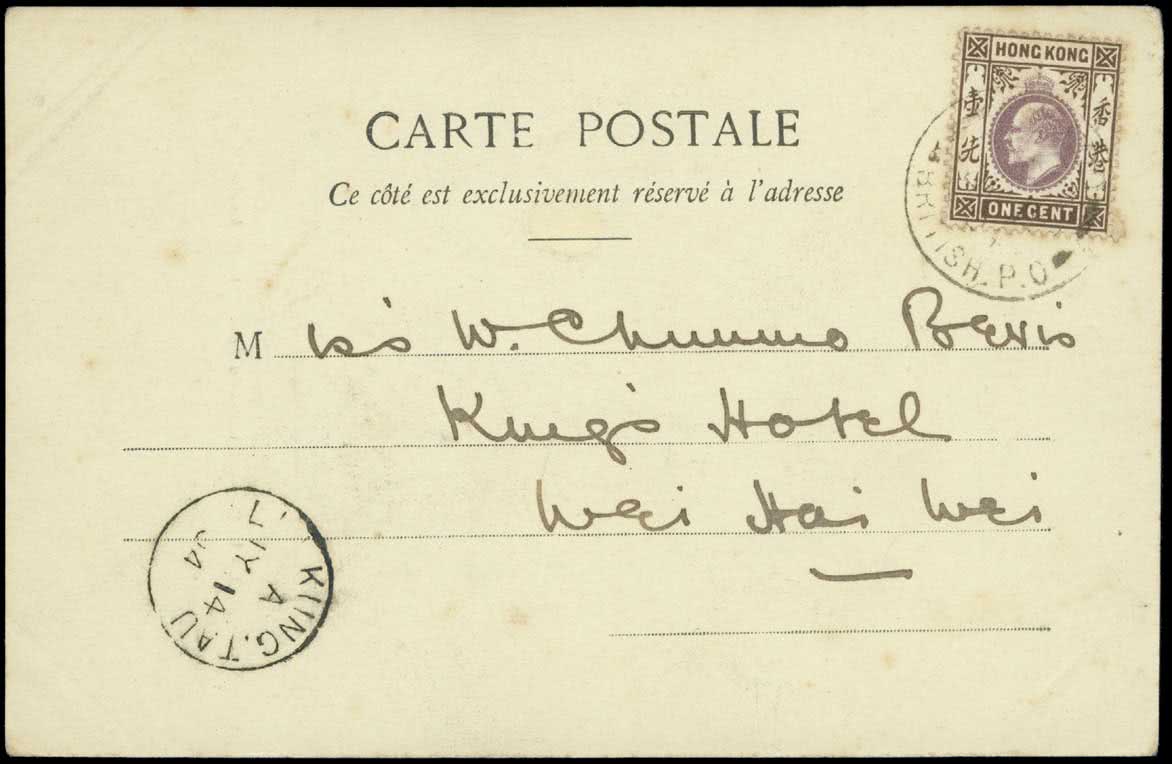 HONG KONG
壹先
香港
ONE CENT
BRITISH. P. O
CARTE POSTALE
Ce côté est exclusivement réservé à l'adresse
M iss W. Bevis
King's Hotel
Wei Hai Wei
KUNG. TAU
A
JY 14
04